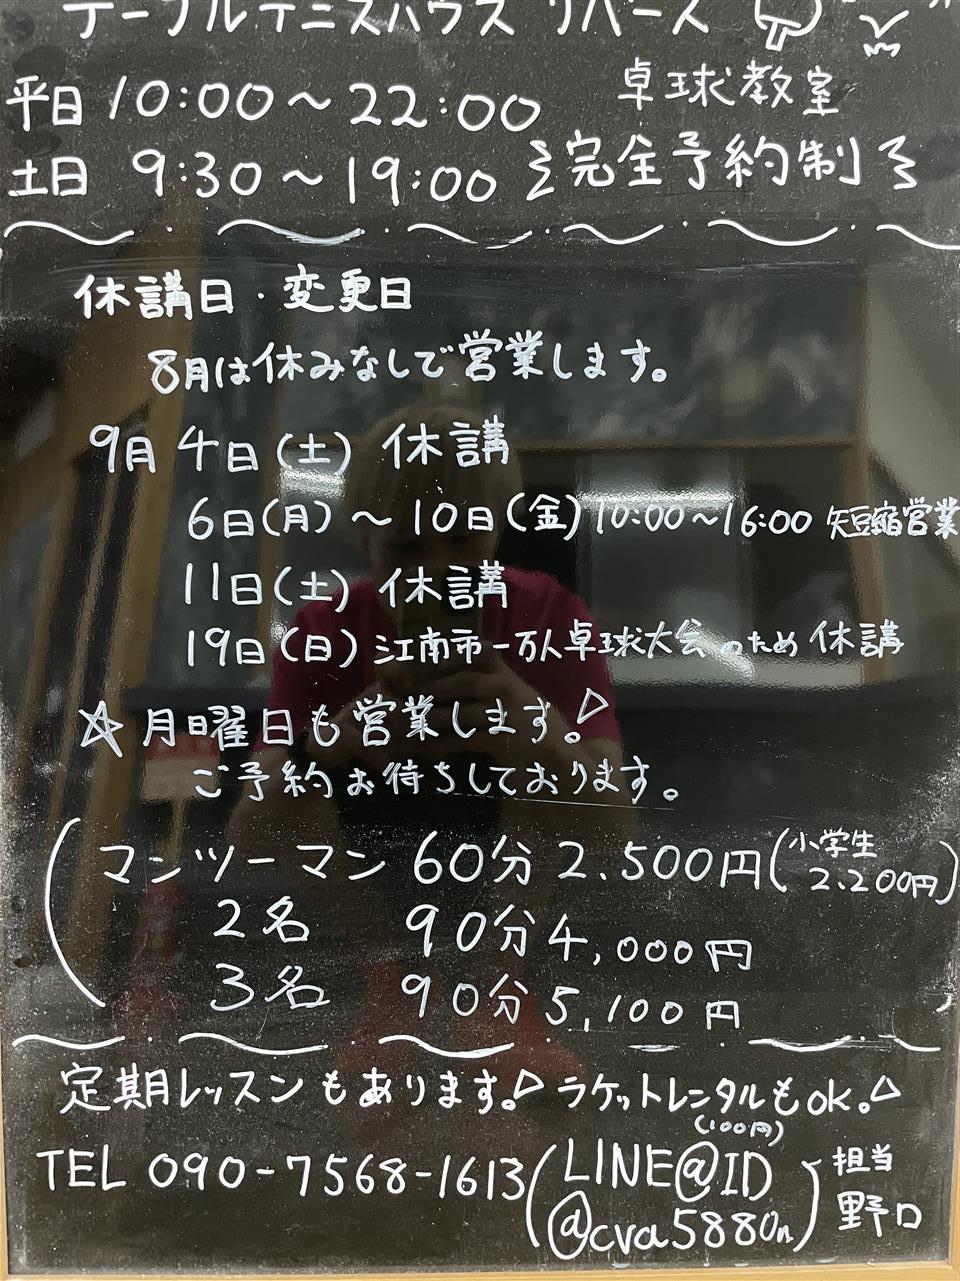 テーブルテニスハウス リバース
卓球教室
平日 10:00～22:00
土日 9:30～19:00 完全予約制
休講日・変更日
8月は休みなしで営業します。
9月4日(土) 休講
6日(月)～10日(金) 10:00～16:00 短縮営業
11日(土) 休講
19日(日) 江南市一万人卓球大会のため 休講
☆月曜日も営業します。
ご予約お待ちしております。
マンツーマン 60分 2.500円(小学生 2.200円)
2名 90分 4,000円
3名 90分 5,100円
定期レッスンもあります。ラケットレンタルもOK。
(100円)
TEL 090-7568-1613 (LINE@ID
@cva5880n)
担当
野口